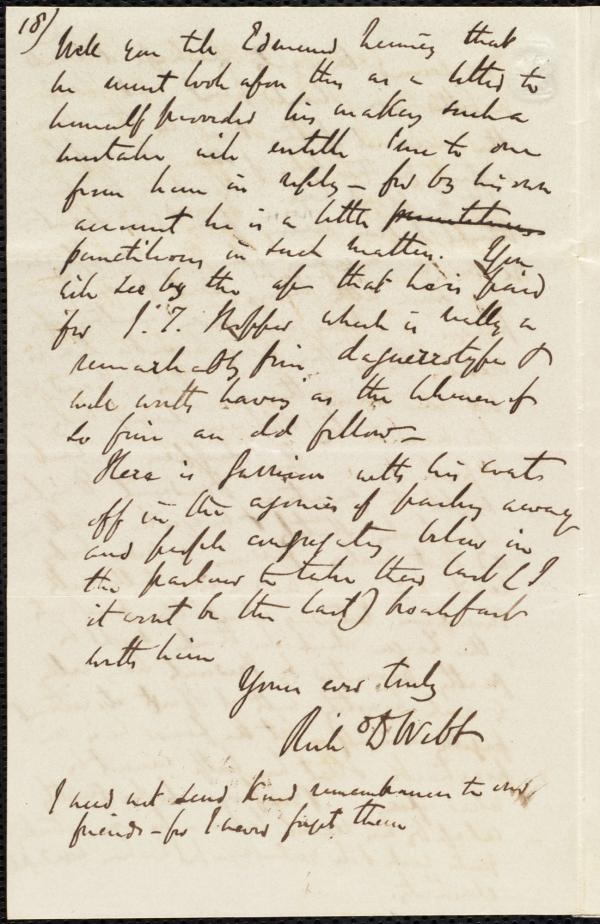 18)
Will you tell Edmund Quincy that
he must look upon this as a letter to
himself provided his making such a
mistake will entitle me to one
from him in reply - for by his own
account he is a little punctilious
punctilious in such matters. You
will see by the that he is paid
for I. T. Hopper which is really a
remarkably fine daguerrotype &
well worth having as the likeness of
so fine an old fellow -
Here is Garrison with his coats
off in the agonies of packing away
and people congregating below in
the parlour to take their last (I
it wont be the last) breakfast
with him
Yours ever truly
Rich D Webb
I need not send kind remembrances to our
friends - for I never forget them